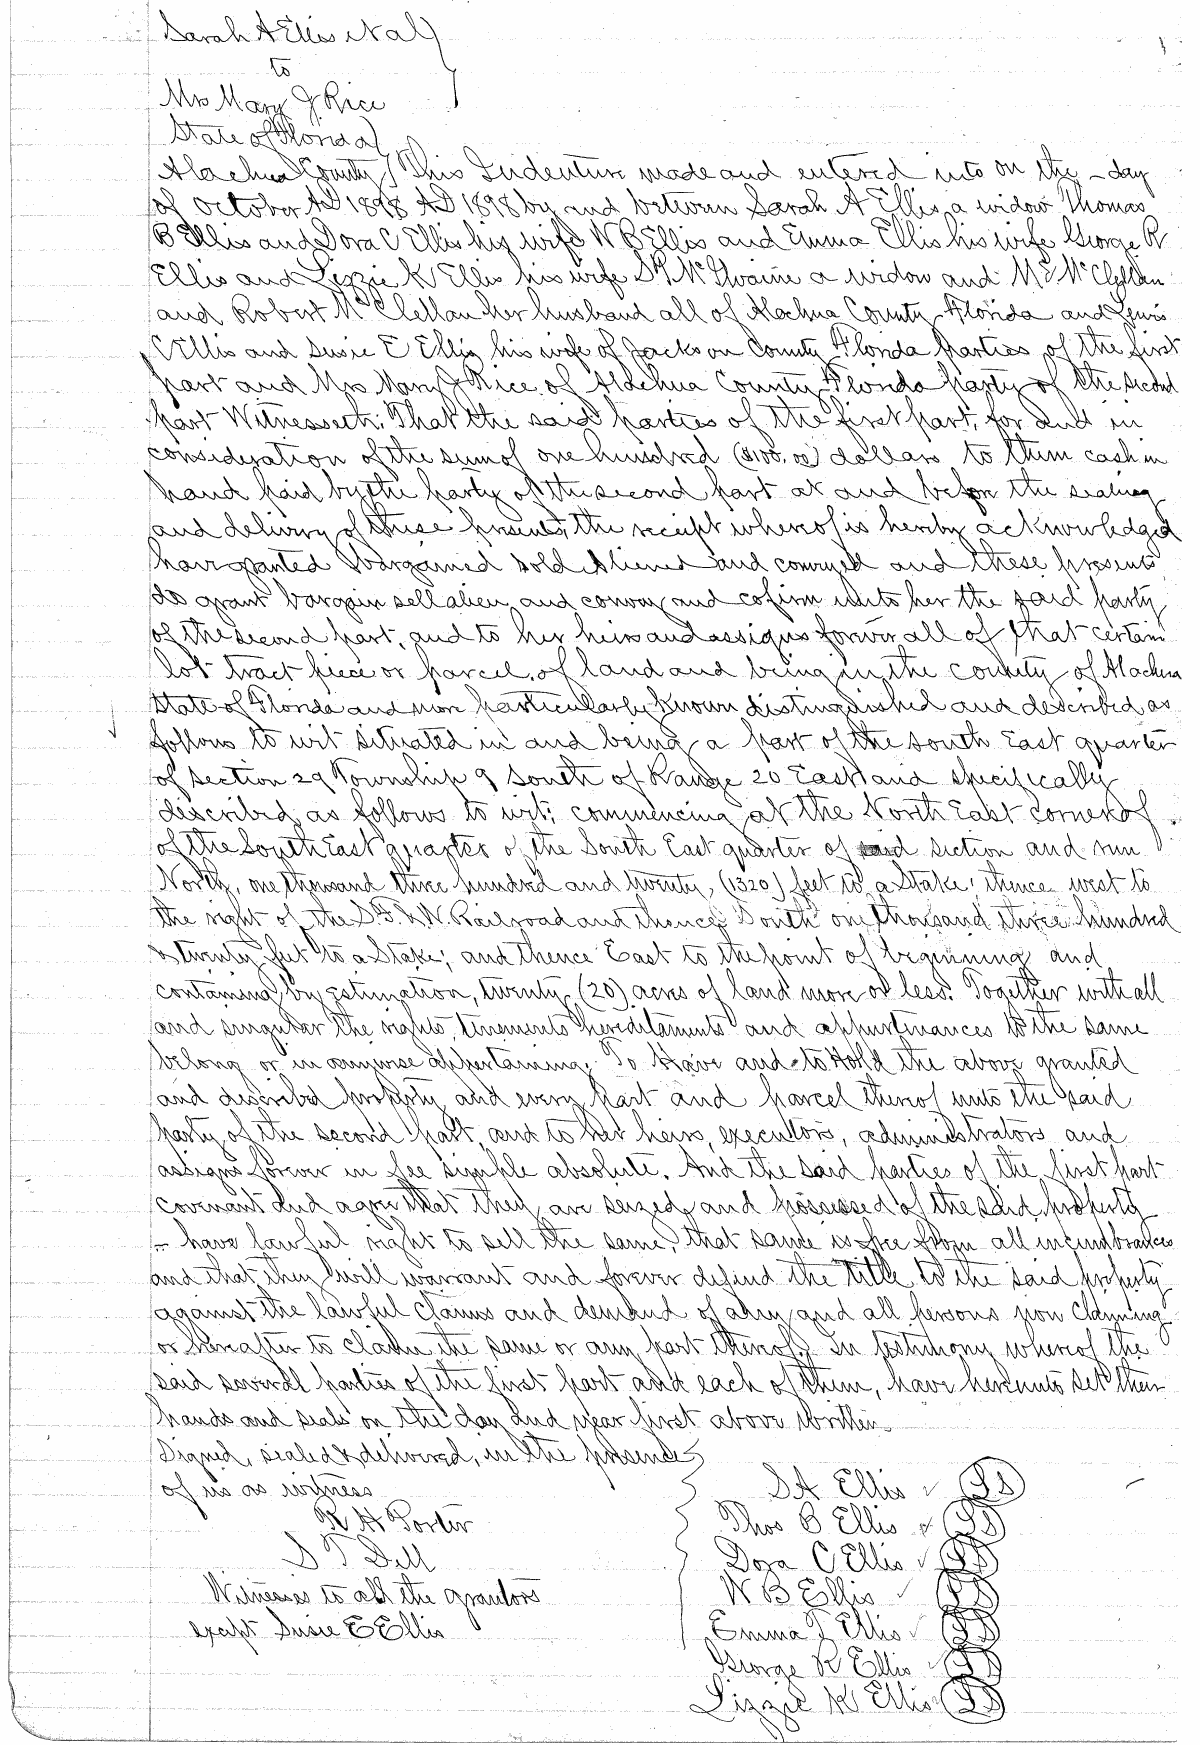 Sarah A Ellis et al
to
Mrs Mary J. Rice
State of Florida
Alachua County This Indenture made and entered into on the - day
of October AD 1898 AD 1898 by and between Sarah A Ellis, a widow Thomas
B Ellis and Dora C Ellis his wife W B Ellis and Emma Ellis his wife George R
Ellis and Lizzie K Ellis his wife McIlvaine a widow and McClellan
and Robert McClellan her husband all of Alachua County, Florida and Lewis
C Ellis and Susie E Ellis his wife of Jackson County Florida parties of the first
part and Mrs Mary J Rice of Alachua County Florida party of the second
part Witnesseth; That the said parties of the first part, for and in
consideration of the sum of one hundred ($100.00) dollars to them cash in
hand paid by the party of the second part at and before the sealing
and delivery of these presents, the receipt whereof is hereby acknowledged
have granted bargained sold aliened and conveyed and these presents
do grant bargain sell alien, and convey and cofirm unto her the said party
of the second part, and to her heirs and assigns forever all of that certain
lot tract piece or parcel, of land and being in the county of Alachua
State of Florida and more particularly known distinguished and described as
follows to wit situated in and being a part of the South East quarter
of section 29 Township 9 South of Range 20 East and specifically
described, as follows to wit; commencing at the North East corner of
of the South East quarter of the South East quarter of said section and run
North, one thousand three hundred and twenty, (1320) feet to a Stake; thence west to
the right of the S.F. & W. Railroad and thence South one thousand three hundred
& twenty feet to a Stake; and thence East to the point of beginning and
containing by estimation, twenty (20) acres of land more or less. Together with all
and singular the rights, tenements hereditaments and appurtinances to the same
belong or in anywise appertaining; To Have and to Hold the above granted
and described property and every part and parcel thereof unto the said
party of the second part, and to her heirs, executors, administrators and
assigns forever in fee simple absolute. And the said parties of the first part
covenant and agree that they are seized and possessed of the said property
- have lawful right to sell the same, that same is free from all incumbrances
and that they will warrant and forever defend the title to the said property
against the lawful claims and demand of any and all persons now claiming
or hereafter to claim the same or any part thereof. In testimony whereof the
said several parties of the first part and each of them, have hereunto set their
hands and seals on the day and year first above written
Signed, sealed & delivered, in the presence
of us as witness
R H Porter
S T Dell
Witnesses to all the grantors
except Susie E Ellis
S A Ellis LS
Thos B Ellis LS
Dora C Ellis LS
W B Ellis LS
Emma T Ellis LS
George R Ellis LS
Lizzie K Ellis LS